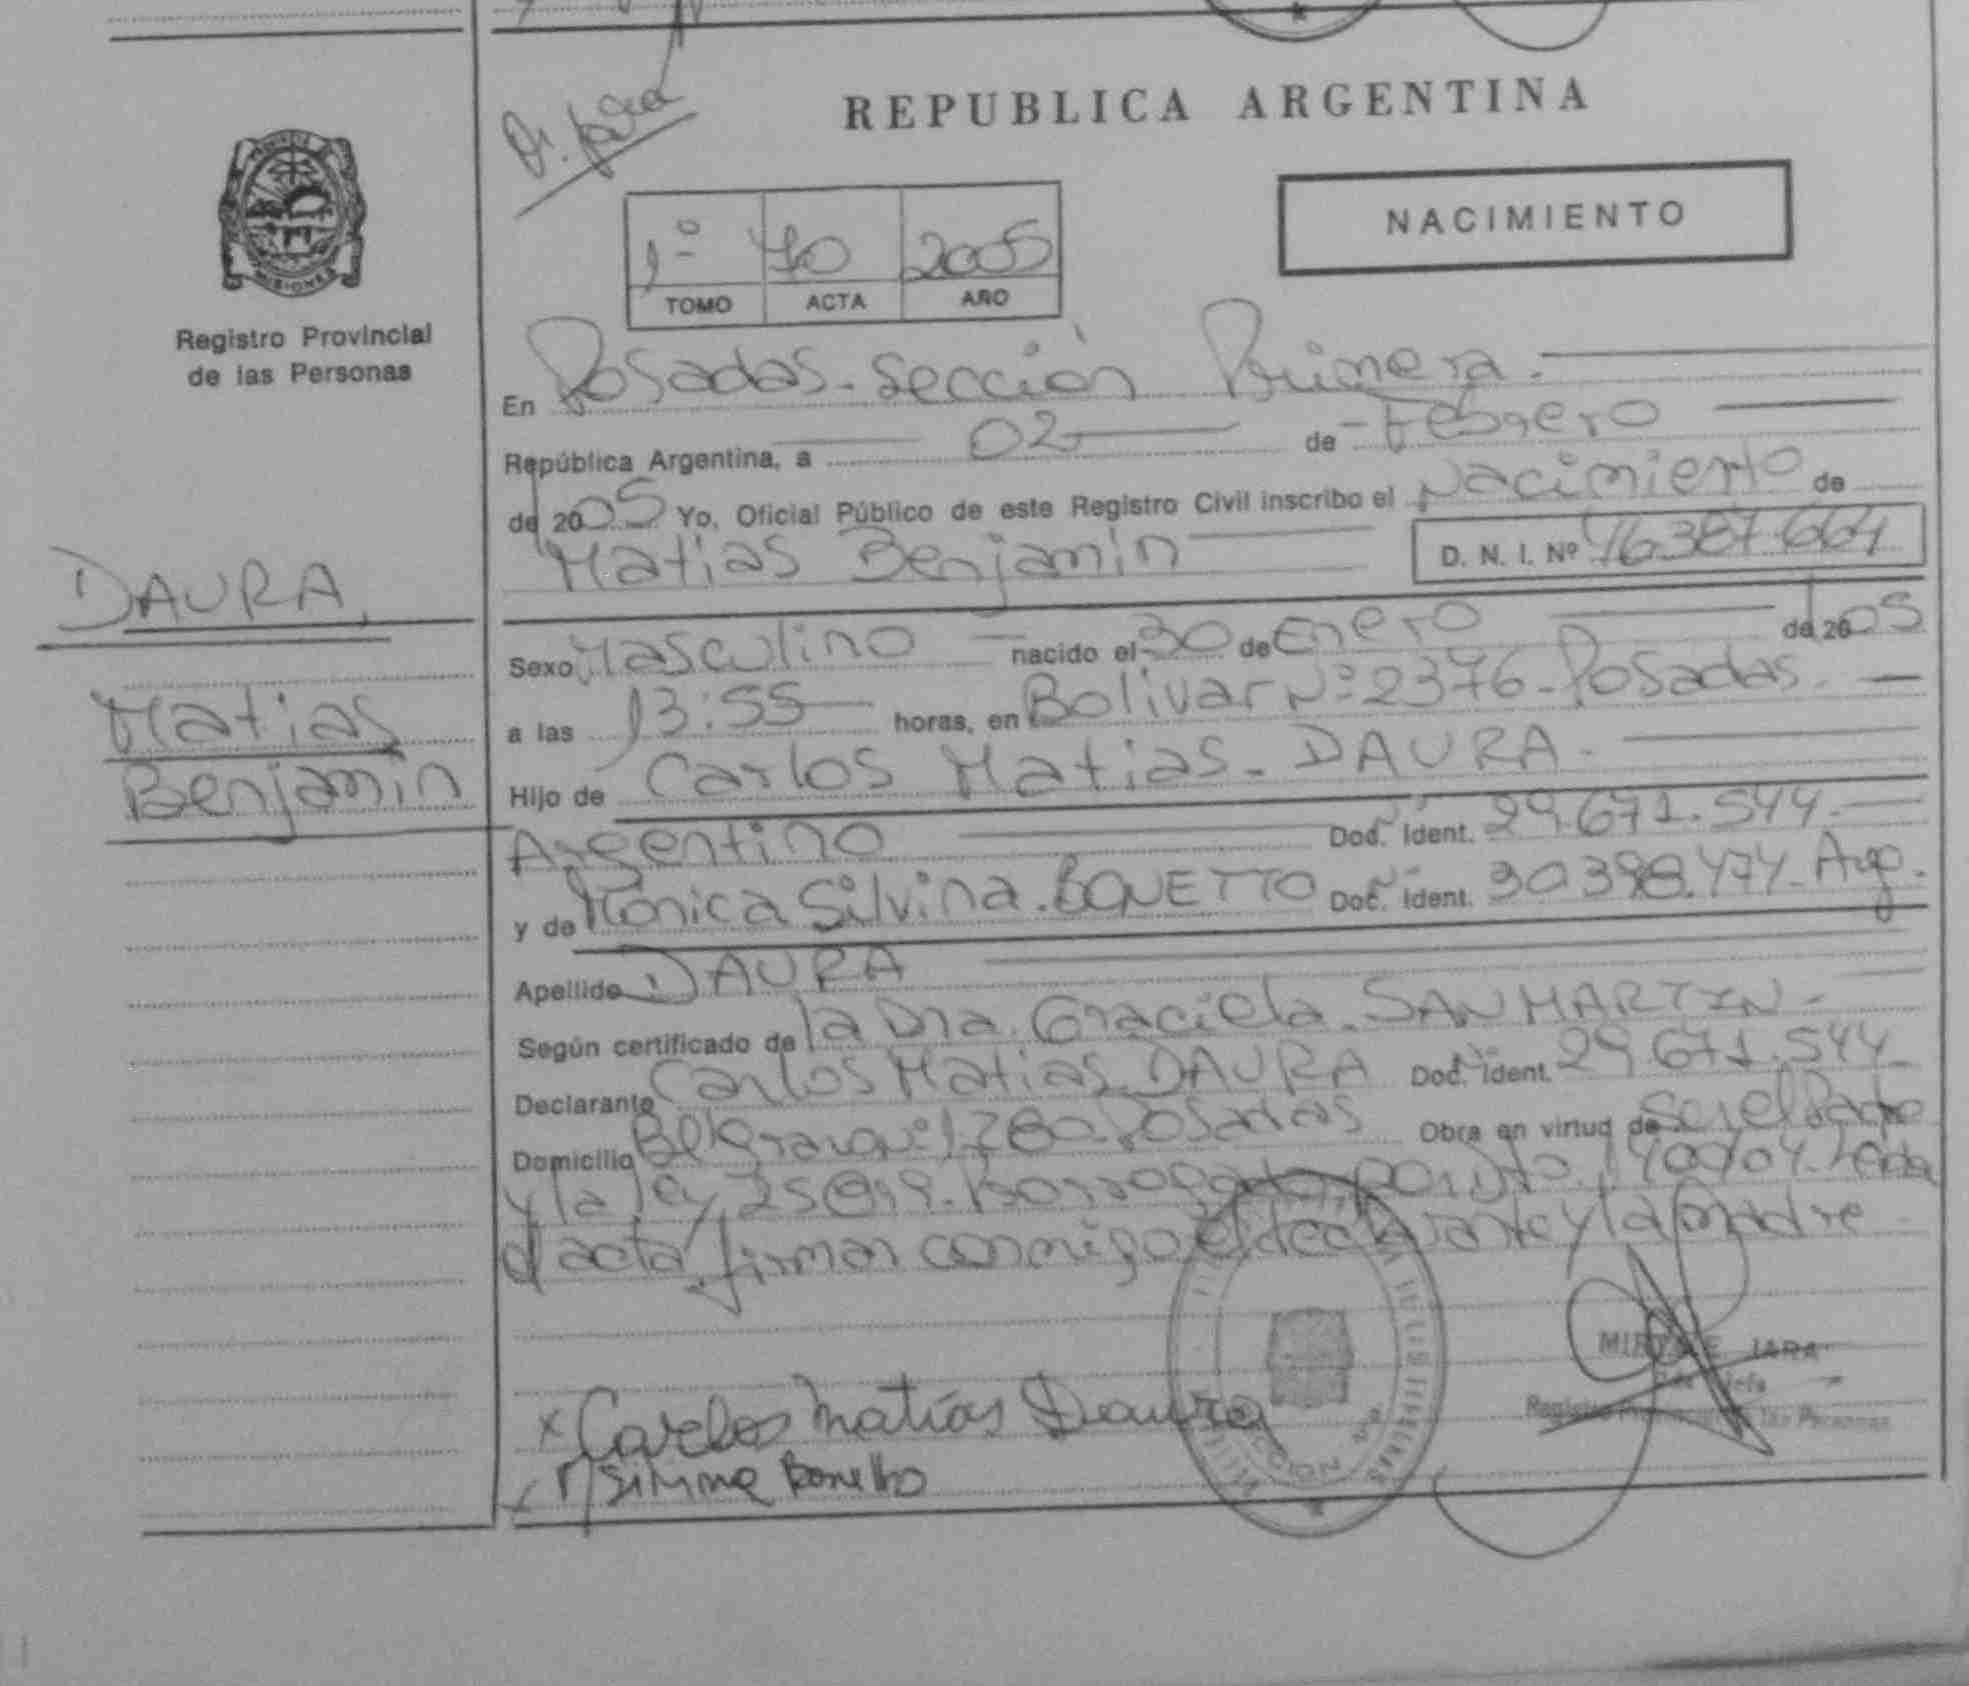 REPUBLICA ARGENTINA
NACIMIENTO
1º 40 2005
TOMO ACTA AÑO
MISIONES
Registro Provincial
de las Personas
En Posadas - Sección Primera.
República Argentina, a 02 de Febrero
de 2005 Yo, Oficial Público de este Registro Civil inscribo el Nacimiento de
Matias Benjamin D. N. I. Nº 46387.664
DAURA
Matias
Benjamin
Sexo Masculino nacido el 30 de Enero de 2005
a las 13:55 horas, en Bolivar Nº 2376 - Posadas.
Hijo de Carlos Matias - DAURA.
Argentino Doc. Ident. 29.671.544.
y de Mónica Silvina. BONETTO Doc. Ident. 30398.474 - Arg.
Apellido DAURA
Según certificado de la Dra. Graciela. SAN MARTIN -
Declarante Carlos Matias DAURA Doc. Ident. 29.671.544 -
Domicilio Belgrano nº 1280 - Posadas Obra en virtud de Ser el Padre
y la ley 25819. por Dto. 1400/04. Leida
el acta, firman conmigo el declarante y la Madre
Carlos Matias Daura
MIRTA E. JARA
Registro Provincial de las Personas
Silvina Bonetto